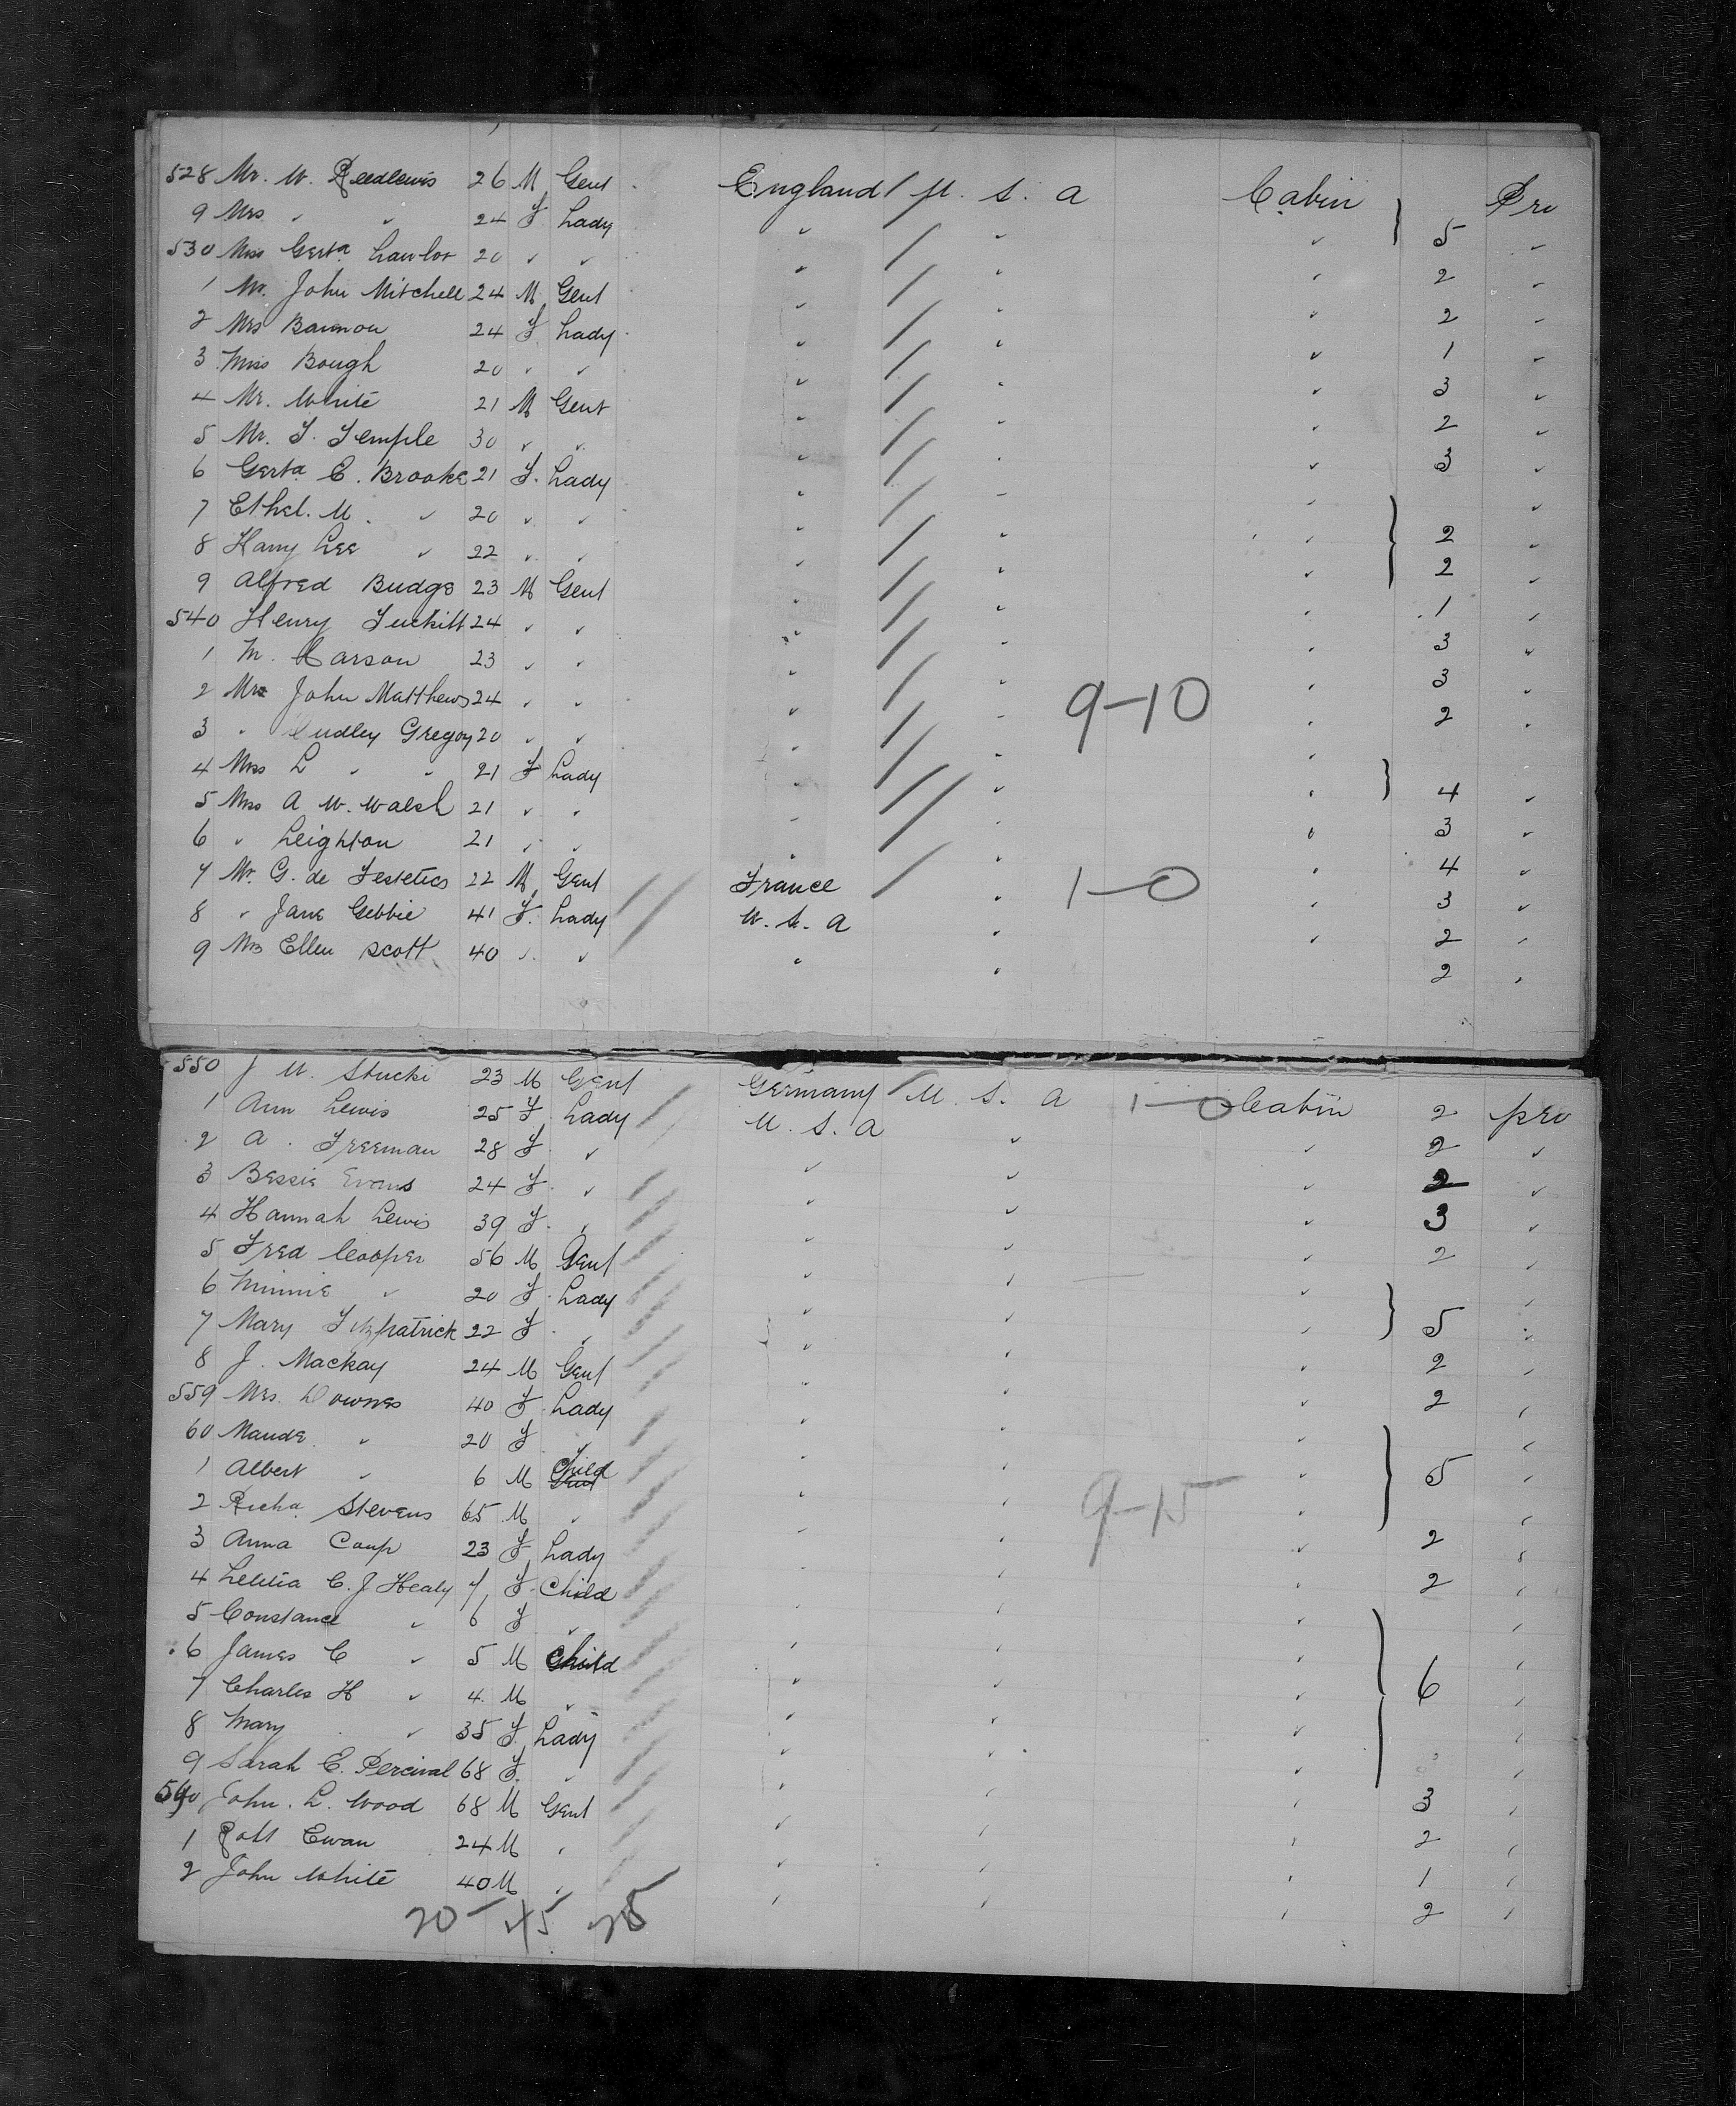 528 Mr. W. Reedlewis 26 M Gent England U. S. A Cabin Pro
9 Mrs " " 24 F Lady " " " 5 "
530 Miss Gerta. Lawlor 20 " " " " " 2 "
1 Mr. John Mitchell 24 M Gent " " " 2 "
2 Mrs Bannon 24 F Lady " " " 1 "
3 Miss Bough 20 " " " " " 3 "
4 Mr. White 21 M Gent " " " 2 "
5 Mr. T. Temple 30 " " " " " 3 "
6 Gerta. E. Brooke 21 F. Lady " " " "
7 Ethel. M. " 20 " " " " " 2 "
8 Harry Lee " 22 " " " " " 2 "
9 Alfred Budge 23 M Gent " " " 1 "
540 Henry Tuckitt 24 " " " " " 3 "
1 M. Carson 23 " " " " " 3 "
2 Mr John Matthews 24 " " " " 9-10 " 2 "
3 " Dudley Gregory 20 " " " " "
4 Miss L " " 21 F Lady " " " 4 "
5 Miss A W. Walsh 21 " " " " " 3 "
6 " Leighton 21 " " " " " 4 "
7 Mr. G. de Festetics 22 M Gent France " 1-0 " 3 "
8 " Jane Gebbie 41 F. Lady U. S. A " " 2 "
9 Mrs Ellen Scott 40 " " " " 2 "
550 J U. Stucki 23 M Gent Germany U. S. A 1-0 Cabin 2 pro
1 Ann Lewis 25 F. Lady U. S. A " " 2 "
2 A. Freeman 28 F. " " " " 2 "
3 Bessie Evans 24 F. " " " " 3 "
4 Hannah Lewis 39 F. " " " " 2 "
5 Fred Cooper 56 M Gent " " " "
6 Minnie " 20 F. Lady " " " 5 "
7 Mary Fitzpatrick 22 F " " " " 2 "
8 J. Mackay 24 M Gent " " " 2 "
559 Mrs. Downes 40 F. Lady " " " "
60 Maude " 20 F " " " " 5 "
1 Albert " 6 M Child " " " "
2 Richd. Stevens 65 M " " " 9-15 " 2 "
3 Anna Coup 23 F Lady " " " 2 "
4 Letitia C. J Healy 7 F. Child " " " "
5 Constance " 6 F " " " " "
6 James C " 5 M Child " " " 6 "
7 Charles H " 4. M " " " " "
8 Mary " 35 F. Lady " " " "
9 Sarah E. Percival 68 F. " " " " 3 "
570 John. L. Wood 68 M Gent " " " 2 "
1 Robt Ewan 24 M " " " " 1 "
2 John White 40 M " " " " 2 "
20 45 25